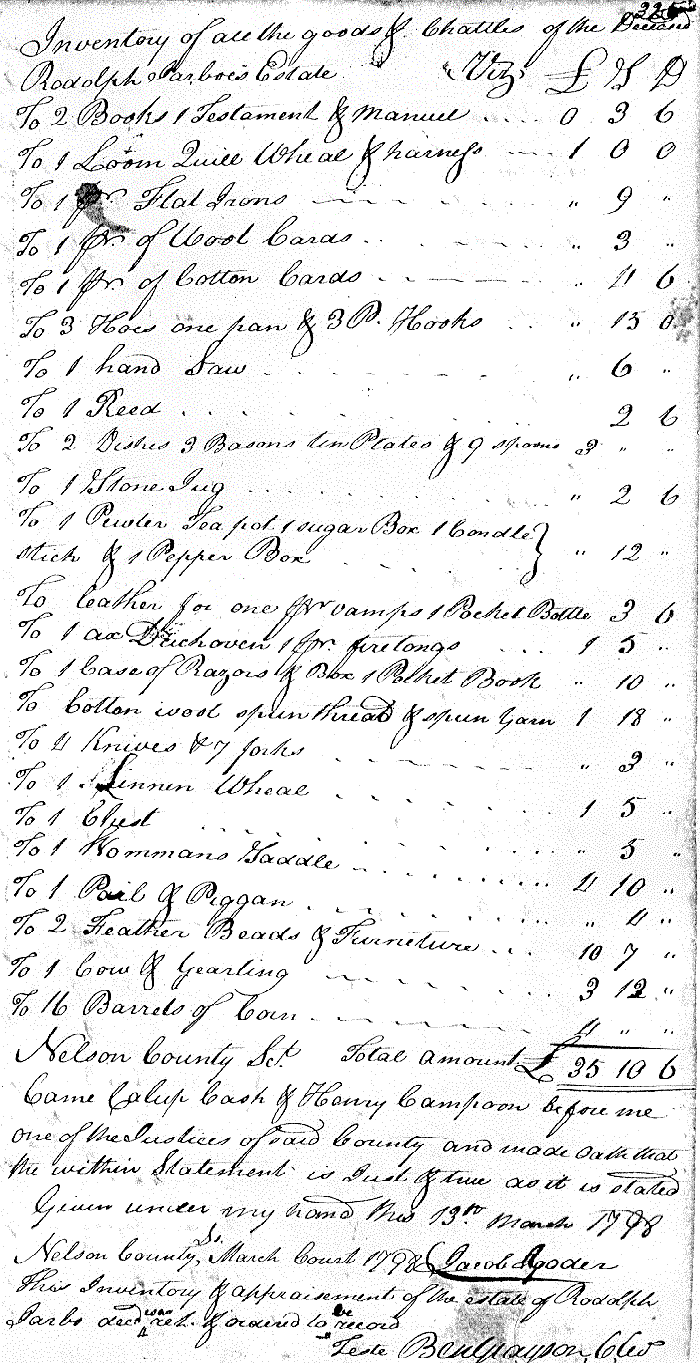 226
Inventory of all the goods & Chattles of the Deceasd
Rodolph Jarboe's Estate Viz £ S D
To 2 Books 1 Testament & Manuel 0 3 6
To 1 Loom Quill Wheal & harness 1 0 0
To 1 pr. Flat Irons " 9 "
To 1 pr. of Wool Cards 3 "
To 1 pr. of Cotton Cards " 4 6
To 3 Hoes one pan & 3 P. Hooks " 13 0
To 1 hand Saw " 6 "
To 1 Reed 2 6
To 2 Dishes 3 Basons ten Plates & 9 spoons 3 " "
To 1 Stone Jug " 2 6
To 1 Pewter Tea pot 1 sugar Box 1 Candle
stick & 1 Pepper Box " 12 "
To leather for one pr vamps 1 Pocket Bottle 3 6
To 1 ax Duchoven 1 pr. firetongs 1 5 "
To 1 Case of Razors & Box 1 Pocket Book " 10 "
To Cotton wool spun thread & spun Yarn 1 18 "
To 4 Knives & 7 forks " 3 "
To 1 Linnen Wheal 1 5 "
To 1 Chest " 5 "
To 1 Wommans Saddle 4 10 "
To 1 Pail & Piggan " 4 "
To 2 Feather Beads & Furneture 10 7 "
To 1 Cow & Yearling 3 12 "
To 16 Barrels of Corn 4 " "
Nelson County Sct. Total amount £ 35 10 6
Came Calup Cash & Henry Campoon before me
one of the Justices of said County and made oath that
the within Statement is Just & true as it is stated
Given under my hand this 13th March 1798
Nelson County Ss. March Court 1798 Jacob Yoder
This Inventory & appraisement of the estate of Rodolph
Jarbo decd was ret. & ordered to be record
Teste Ben Grayson, C